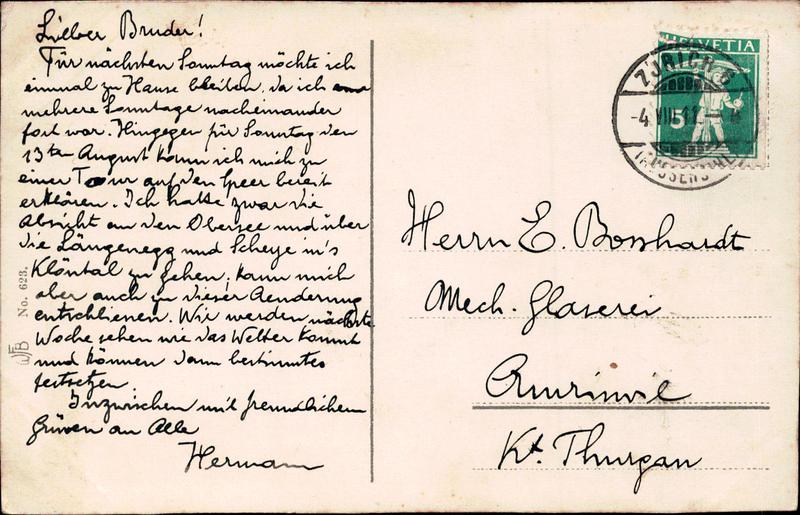 Lieber Bruder!
Für nächsten Sonntag möchte ich
einmal zu Hause bleiben, da ich
mehrere Sonntage nacheinander
fort war. Hingegen für Sonntag den
13ten August kann ich mich zu
einer Tour auf den Speer bereit
erklären. Ich hatte zwar die
Absicht an den Obersee und über
die Längenegg und Scheye in's
Klöntal zu gehen, kann mich
aber auch zu dieser Aenderung
entschliessen. Wir werden nächste
Woche sehen wie das Wetter kommt
und können dann bestimmtes
festsetzen.
Inzwischen mit freundlichen
Grüssen an Alle
Hermann
No. 623.
WFB
HELVETIA
5
ZÜRICH 5
-4.VIII.11-
(AUSSERSIHL)
Herrn E. Bosshardt
Mech. Glaserei
Amriswil
Kt. Thurgau